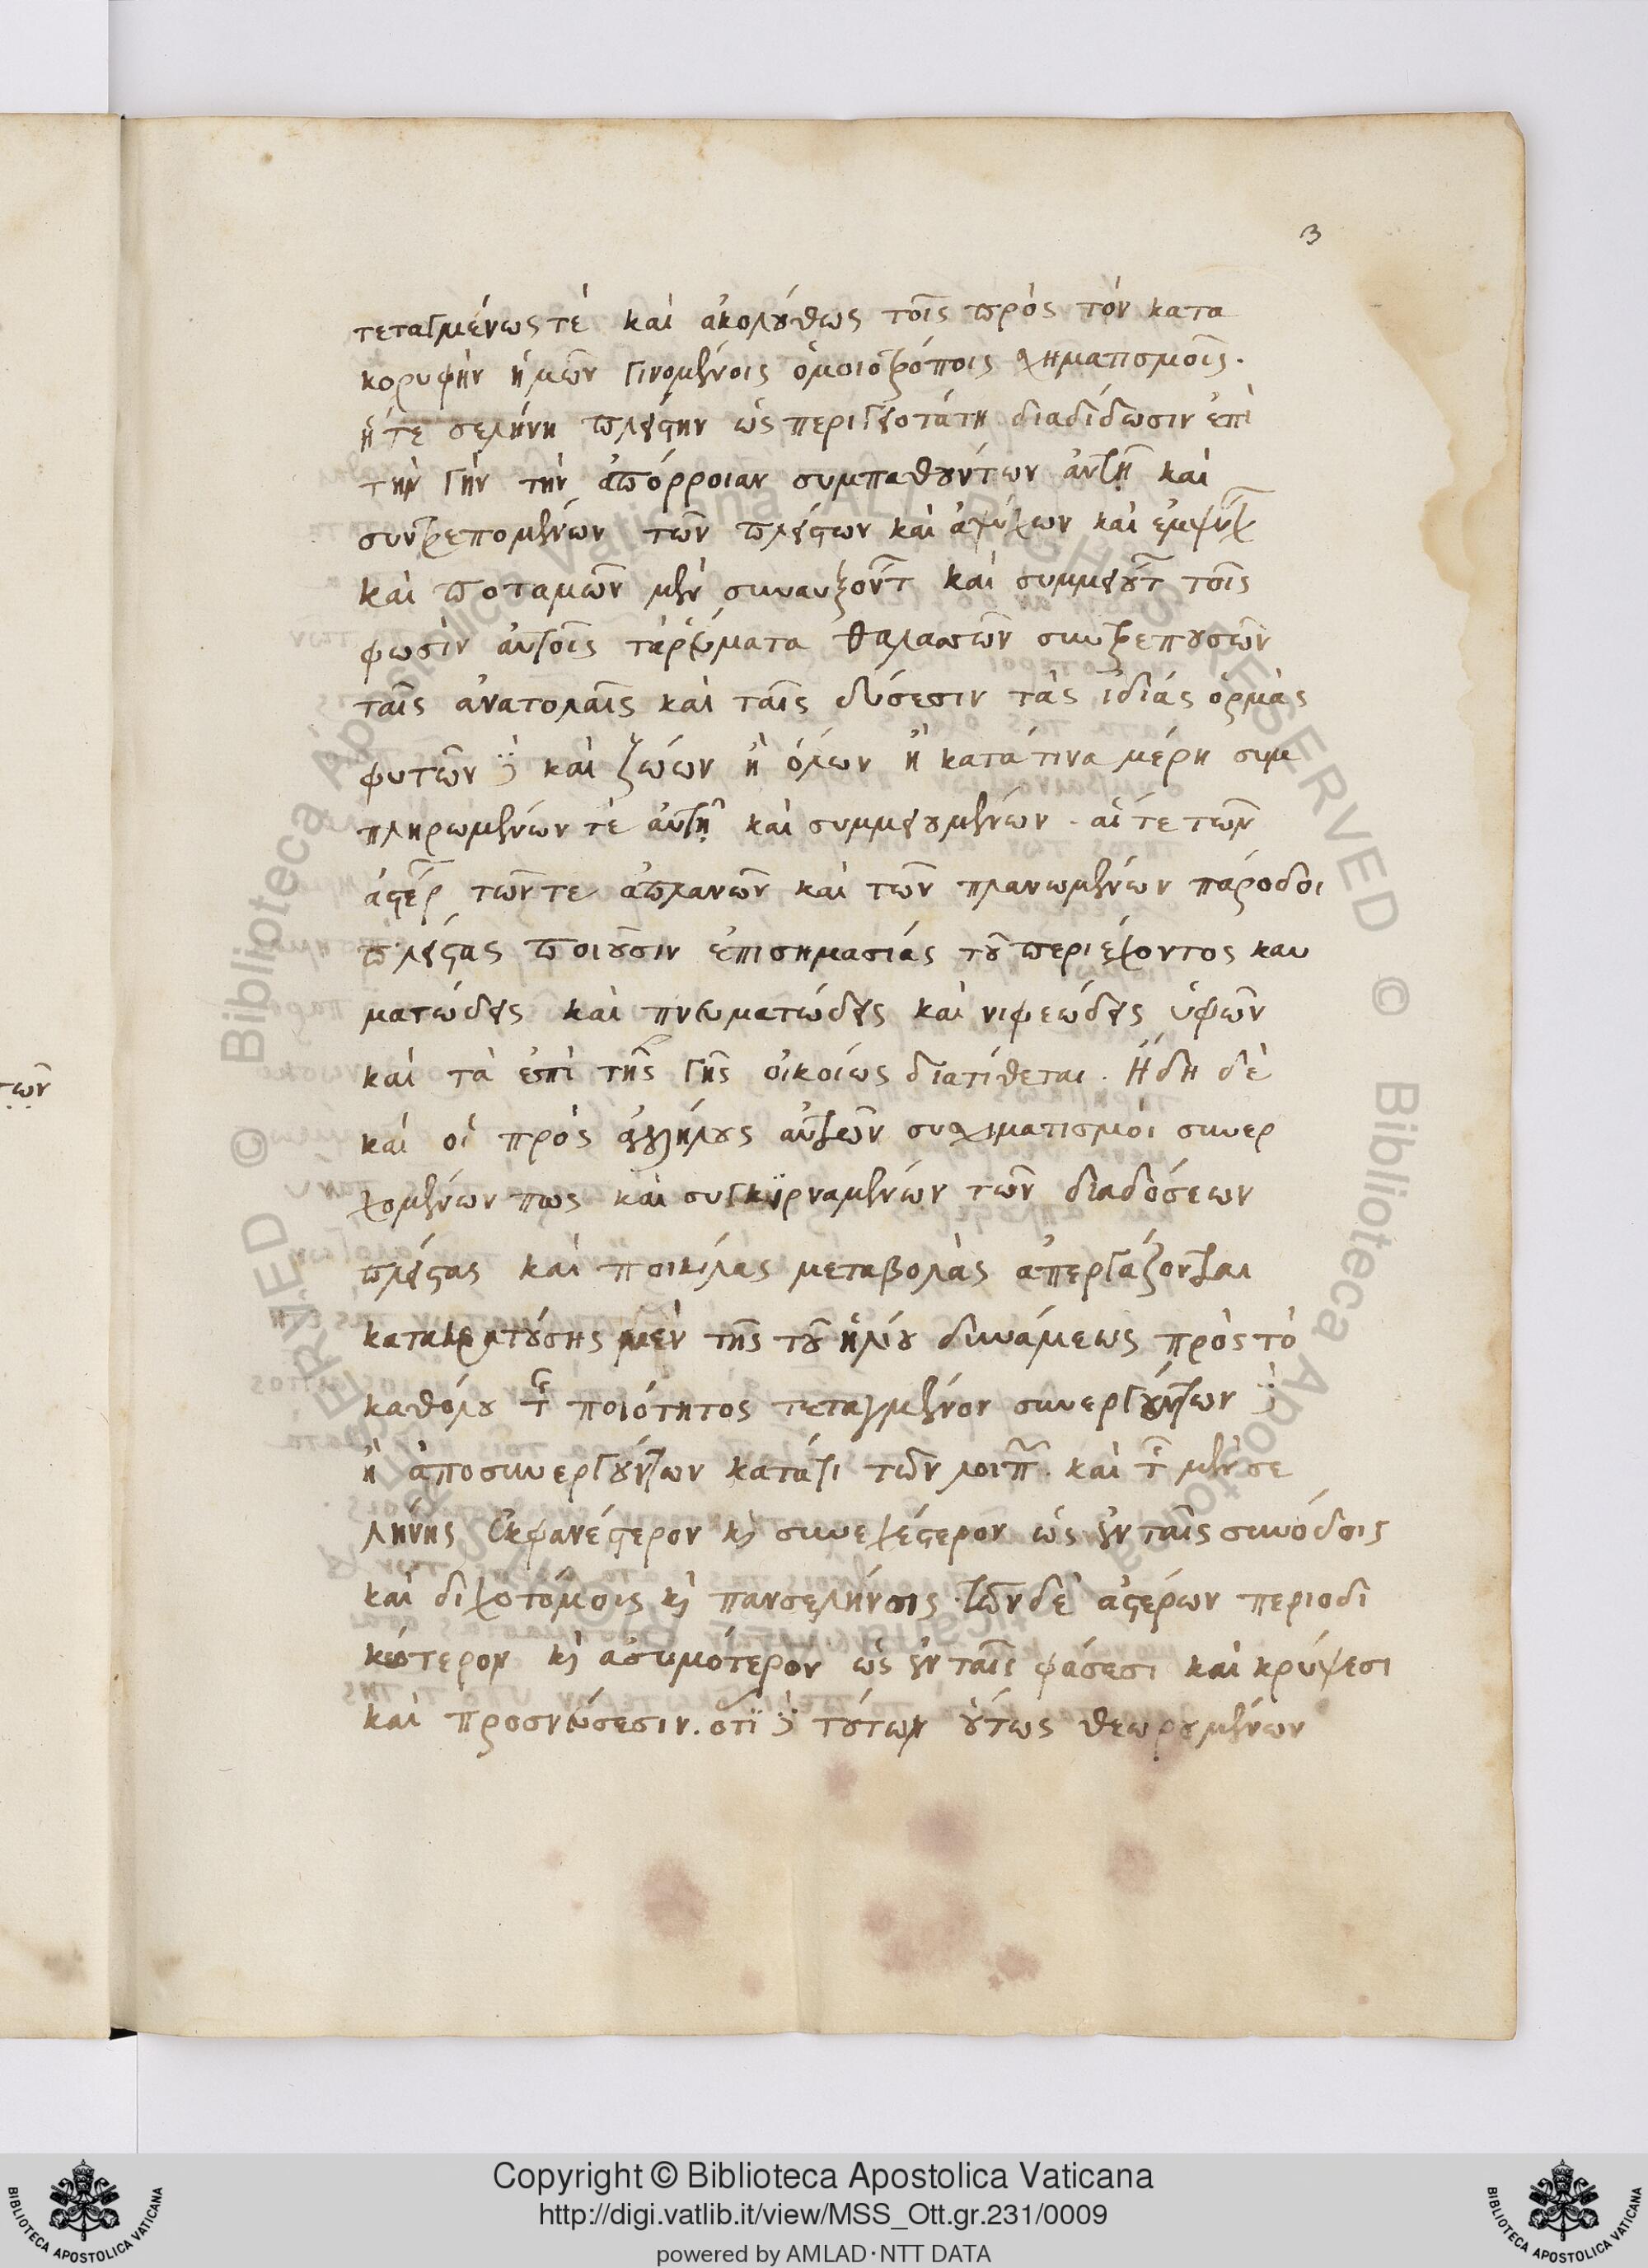 3
τεταγμένως τὲ καὶ ἀκολούθως τοῖς πρὸς τὸν κατα
κορυφὴν ἡμῶν γινομένοις ὁμοιοτρόποις χηματισμοῖς.
ἥ τε σελήνη πλείστην ὡς περιγειοτάτη διαδίδωσιν ἐπὶ
τὴν γῆν τὴν ἀπόρροιαν συμπαθούντων αὐτῇ καὶ
συντρεπομένων τῶν πλείστων καὶ ἀψύχων καὶ ἐμψύχ
καὶ ποταμῶν μὲν συναυξόντ καὶ συμμειούτ τοῖς
φωσὶν αὐτοῖς τὰ ῥεύματα θαλασσῶν συντρεπουσῶν
ταῖς ἀνατολαῖς καὶ ταῖς δύσεσιν τὰς ἰδίας ὁρμὰς
φυτῶν δὲ καὶ ζώων ἢ ὅλων ἢ κατά τινα μέρη συμ
πληρωμένων τὲ αὐτῇ καὶ συμμειουμένων. αἵ τε τῶν
ἀστέρ τῶν τε ἀπλανῶν καὶ τῶν πλανωμένων πάροδοι
πλείστας ποιοῦσιν ἐπισημασίας τοῦ περιέχοντος καυ
ματώδεις καὶ πνευματώδεις καὶ νιφεώδεις ὑφῶν
καὶ τὰ ἐπὶ τῆς γῆς οἰκοίως διατίθεται. Ἤδη δὲ
καὶ οἱ πρὸς ἀλλήλους αὐτῶν συχιματισμὸι συνερ
χομένων πως καὶ συγκιρναμένων τῶν διαδόσεων
πλείστας καὶ ποικίλας μεταβολὰς ἀπεργάζονται
κατακρατούσης μὲν τῆς τοῦ ἡλίου δυνάμεως πρὸς τὸ
καθόλου τῆς ποιότητος τεταγμένον συνεργούντων δὲ
ἢ ἀποσυνεργούντων κατά τι τῶν λοιπ. καὶ τῆς μὲν σε
λήνης ἐκφανέστερον καὶ συνεχέστερον ὡς ἐν ταῖς συνόδοις
καὶ διχοτόμοις καὶ πανσελήνοις. τῶν δὲ ἀστέρων περιοδι
κώτερον καὶ ἀσημότερον ὡς ἐν ταῖς φάσεσι καὶ κρύψεσι
καὶ προσνεύσεσιν. ὅτι δὲ τούτων οὕτως θεωρουμένων
των
© Biblioteca Apostolica Vaticana ALL RIGHTS RESERVED
Copyright © Biblioteca Apostolica Vaticana
http://digi.vatlib.it/view/MSS_Ott.gr.231/0009
powered by AMLAD·NTT DATA
BIBLIOTECA APOSTOLICA VATICANA
BIBLIOTECA APOSTOLICA VATICANA